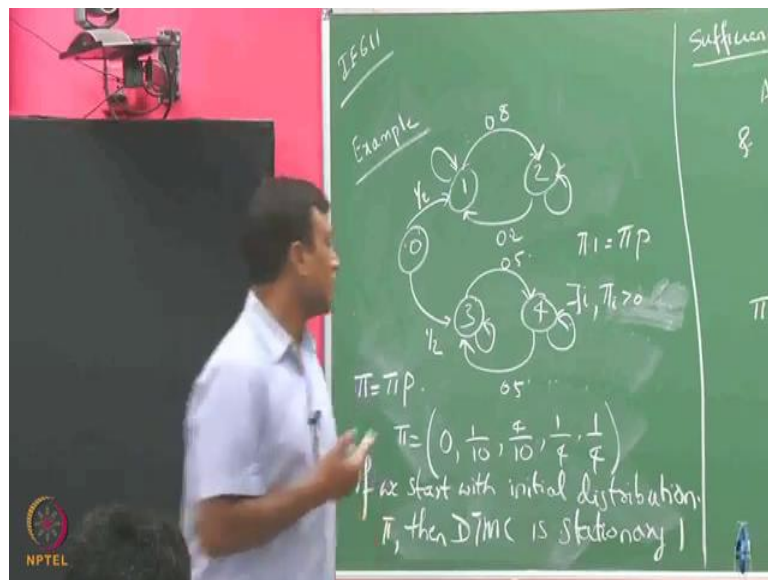 IFG11
Example
0.8
1
2
1/2
0
0.2
π1 = πP
0.5
3
4
∃i, πi>0
1/2
0.5
π = πP.
π = (0, 1/10, 4/10, 1/4, 1/4)
If we start with initial distribution.
π, then DTMC is stationary
Sufficien
&
π
NPTEL